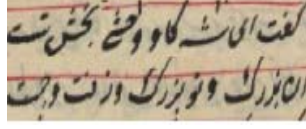 گفت ای شه گاو وحشی بخش تست
آن بزرگ و تو بزرگ و زفت و چست